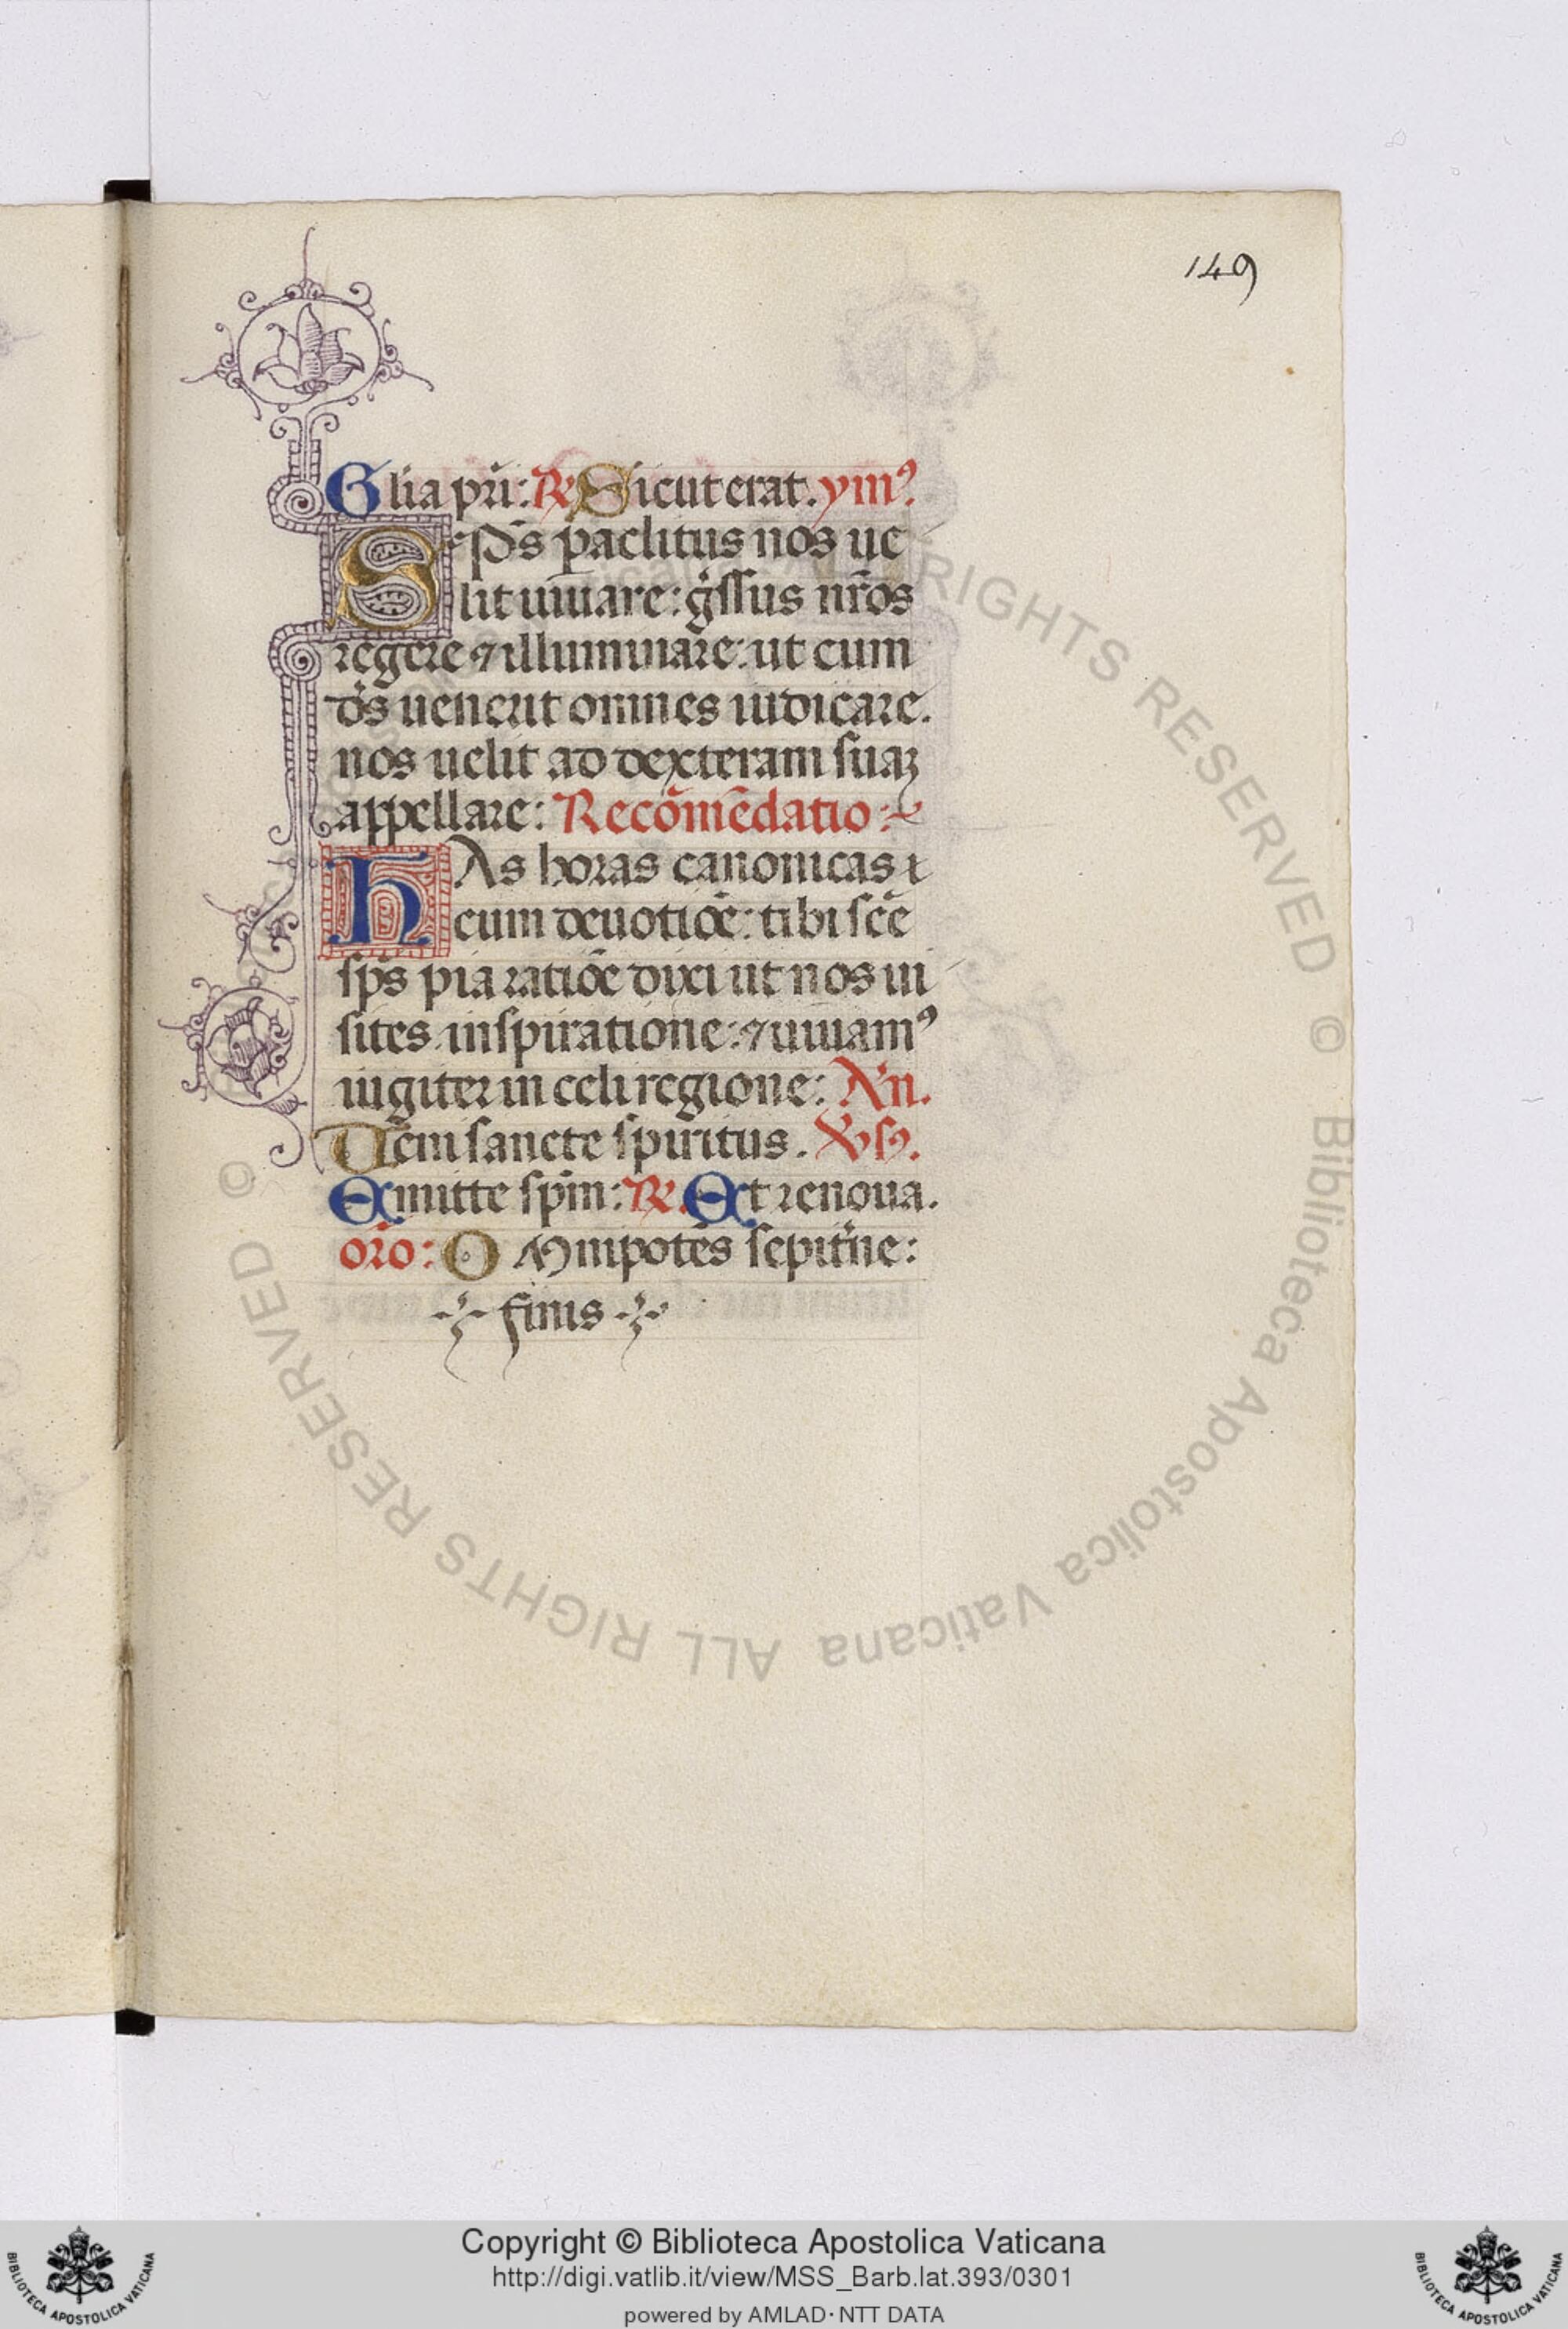 149
Glia pr̄i: ℟ Sicut erat. ymꝰ.
Sp̄s paclitus nos ue
lit iuuare: gͥssus nr̄os
regere ⁊ illuminare: ut cum
dn̄s uenerit omnes iudicare.
nos uelit ad dexteram suaꝫ
appellare: Recōmēdatio:
hAs horas canonicas
cum deuotiōe: tibi scē
sp̄s pia ratiōe dixi ut nos ui
sites inspiratione: ⁊ uiuamꝰ
iugiter in celi regione: An̄.
Ueni sancte spiritus. ℣sꝰ.
Emitte sp̄m: ℟. Et renoua.
or̄o: OMnipotēs sepit̄ne:
finis
RIGHTS RESERVED © Biblioteca Apostolica Vaticana ALL RIGHTS RESERVED ©
Copyright © Biblioteca Apostolica Vaticana
http://digi.vatlib.it/view/MSS_Barb.lat.393/0301
powered by AMLAD·NTT DATA
BIBLIOTECA APOSTOLICA VATICANA
BIBLIOTECA APOSTOLICA VATICANA